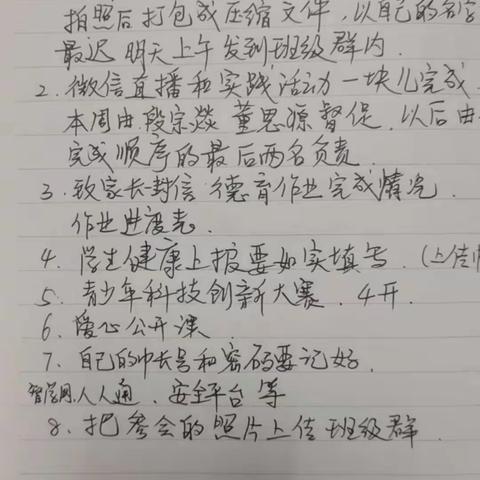 拍照后打包成压缩文件，以自己的名字
最迟明天上午发到班级群内．
2．微信直播和实践活动一块儿完成．
本周由段宗燚 董思源督促，以后由
完成顺序的最后两名负责．
3．致家长一封信 德育作业完成情况．
作业进度表．
4．学生健康上报要如实填写．（上传
5．青少年科技创新大赛．4开．
6．爱心公开课
7．自己的帐号和密码要记好．
智学网．人人通．安全平台等
8．把参会的照片上传班级群．